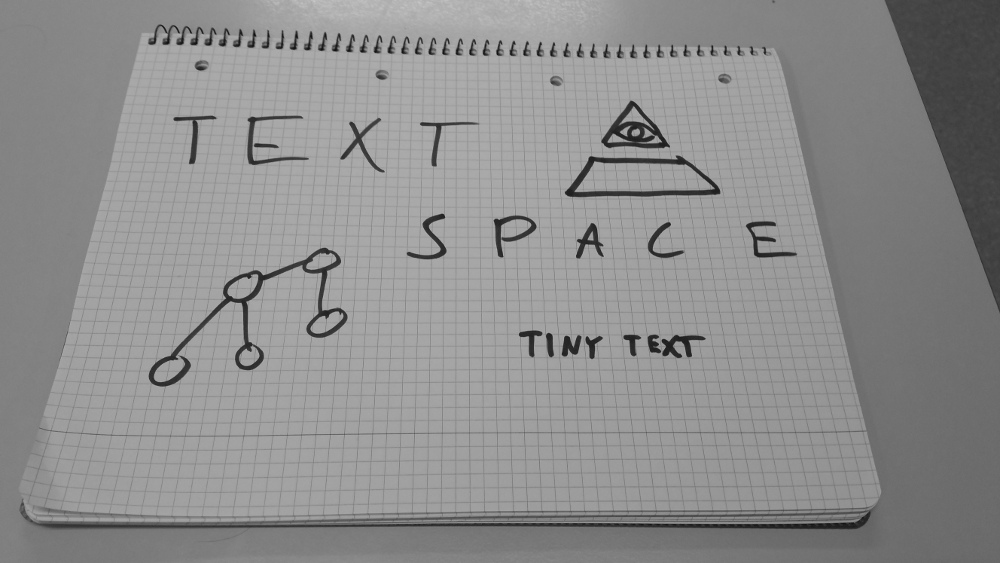 TEXT
SPACE
TINY TEXT